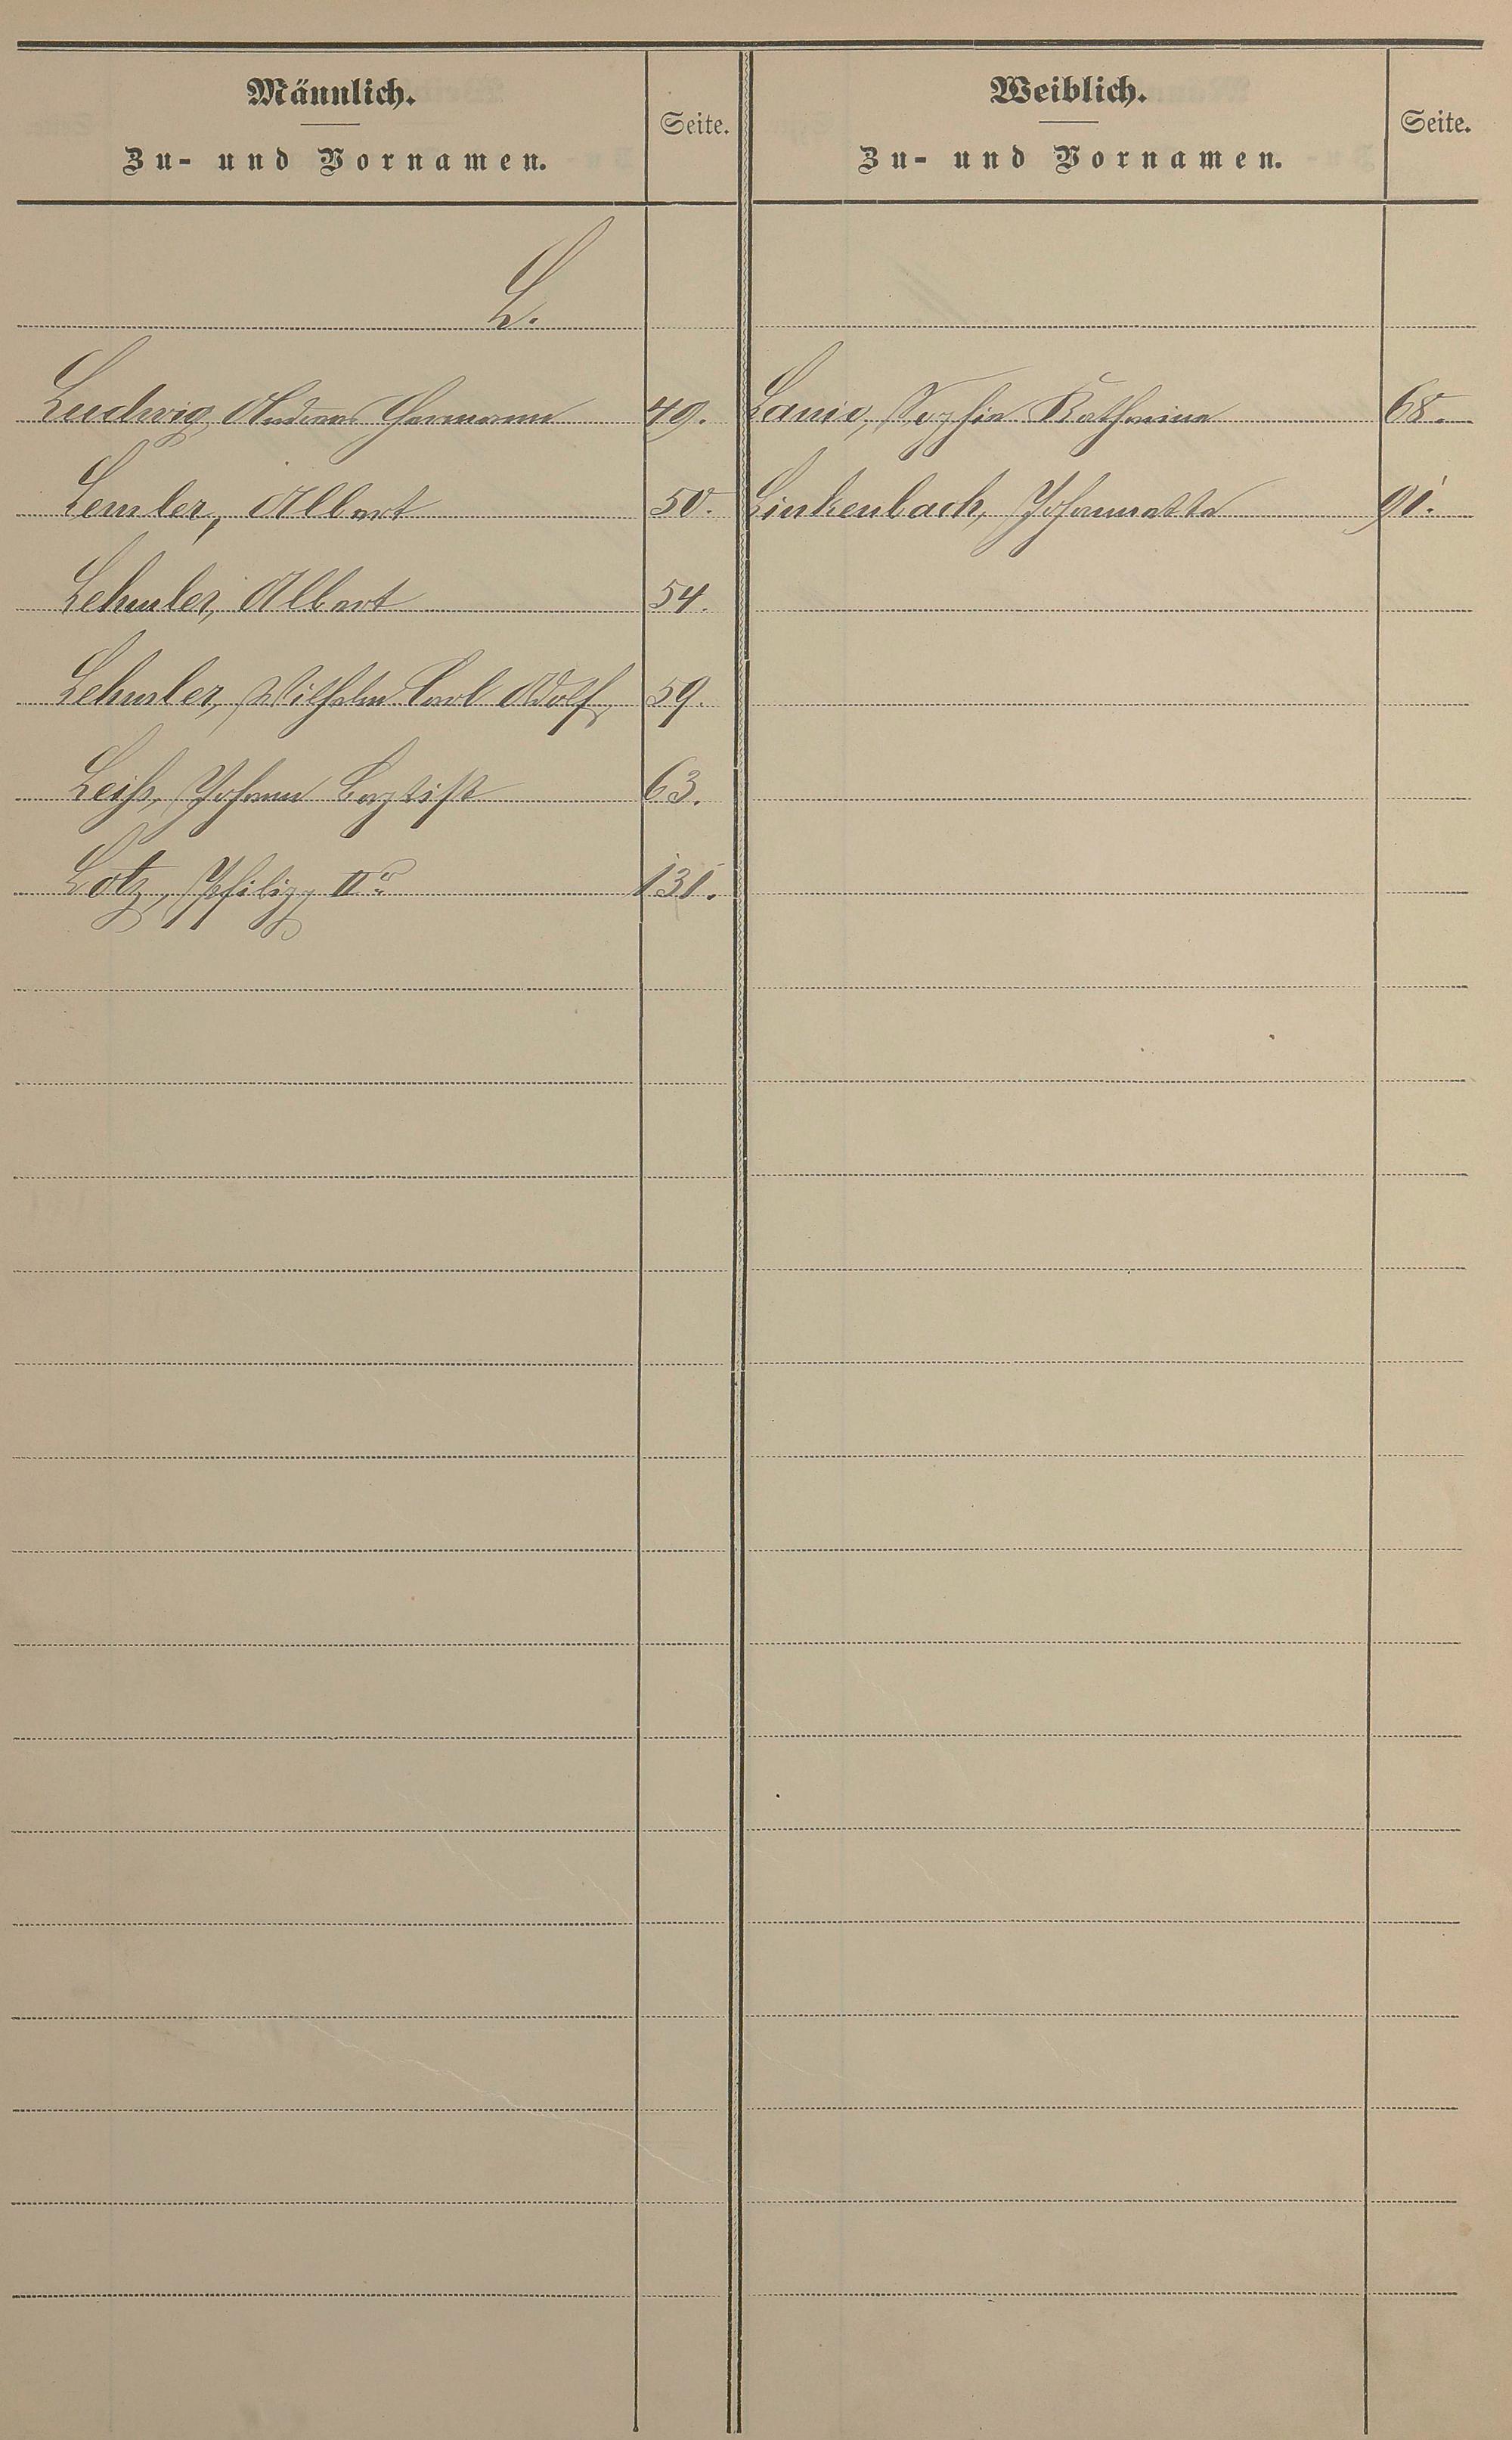 Männlich.
Zu- und Vornamen.
Seite.
Weiblich.
Zu- und Vornamen.
Seite.
L.
Ludwig, Andreas Hermann 49.
Lanio, Sophie Katharina 68.
Lemler, Albert 50.
Linkenbach, Johannette 91.
Lehmler, Albert 54.
Lehmler, Wilhelm Carl Adolf 59.
Leiß, Johann Baptist 63.
Lotz, Philipp IIr 131.